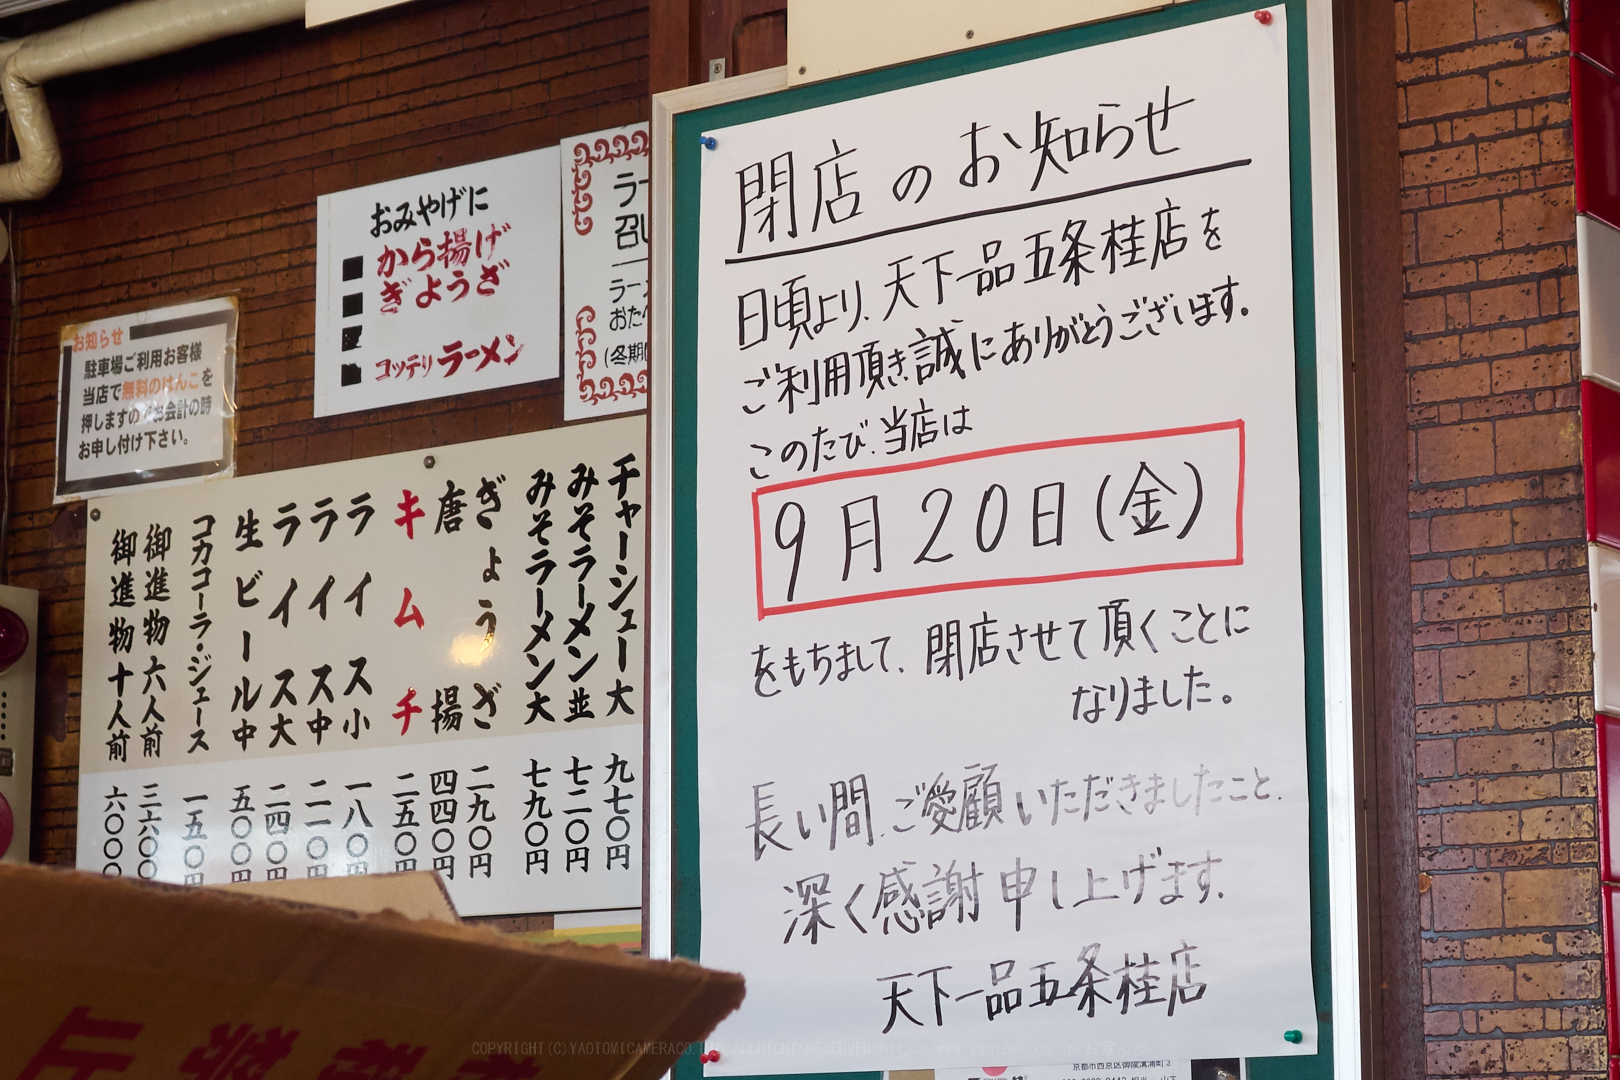 閉店のお知らせ
日頃より、天下一品五条桂店を
ご利用頂き誠にありがとうございます。
このたび、当店は
9月20日(金)
をもちまして、閉店させて頂くことに
なりました。
長い間、ご愛顧いただきましたこと、
深く感謝申し上げます。
天下一品五条桂店
おみやげに
から揚げ
ぎょうざ
コッテリラーメン
お知らせ
駐車場ご利用お客様
当店で無料のはんこを
押しますのでお会計の時
お申し付け下さい。
チャーシュー大 九七〇円
みそラーメン並 七二〇円
みそラーメン大 七九〇円
ぎょうざ 二九〇円
唐揚 四四〇円
キムチ 二五〇円
ライス小 一八〇円
ライス中 二一〇円
ライス大 二四〇円
生ビール中 五〇〇円
コカコーラ・ジュース 一五〇円
御進物六人前 三六〇〇
御進物十人前 六〇〇〇
ラー
召し
ラーメ
おた
(冬期
京都市西京区御陵溝浦町3
COPYRIGHT (C) YAOTOMICAMERACO.,LTD. ALLRIGHTSRESERVED